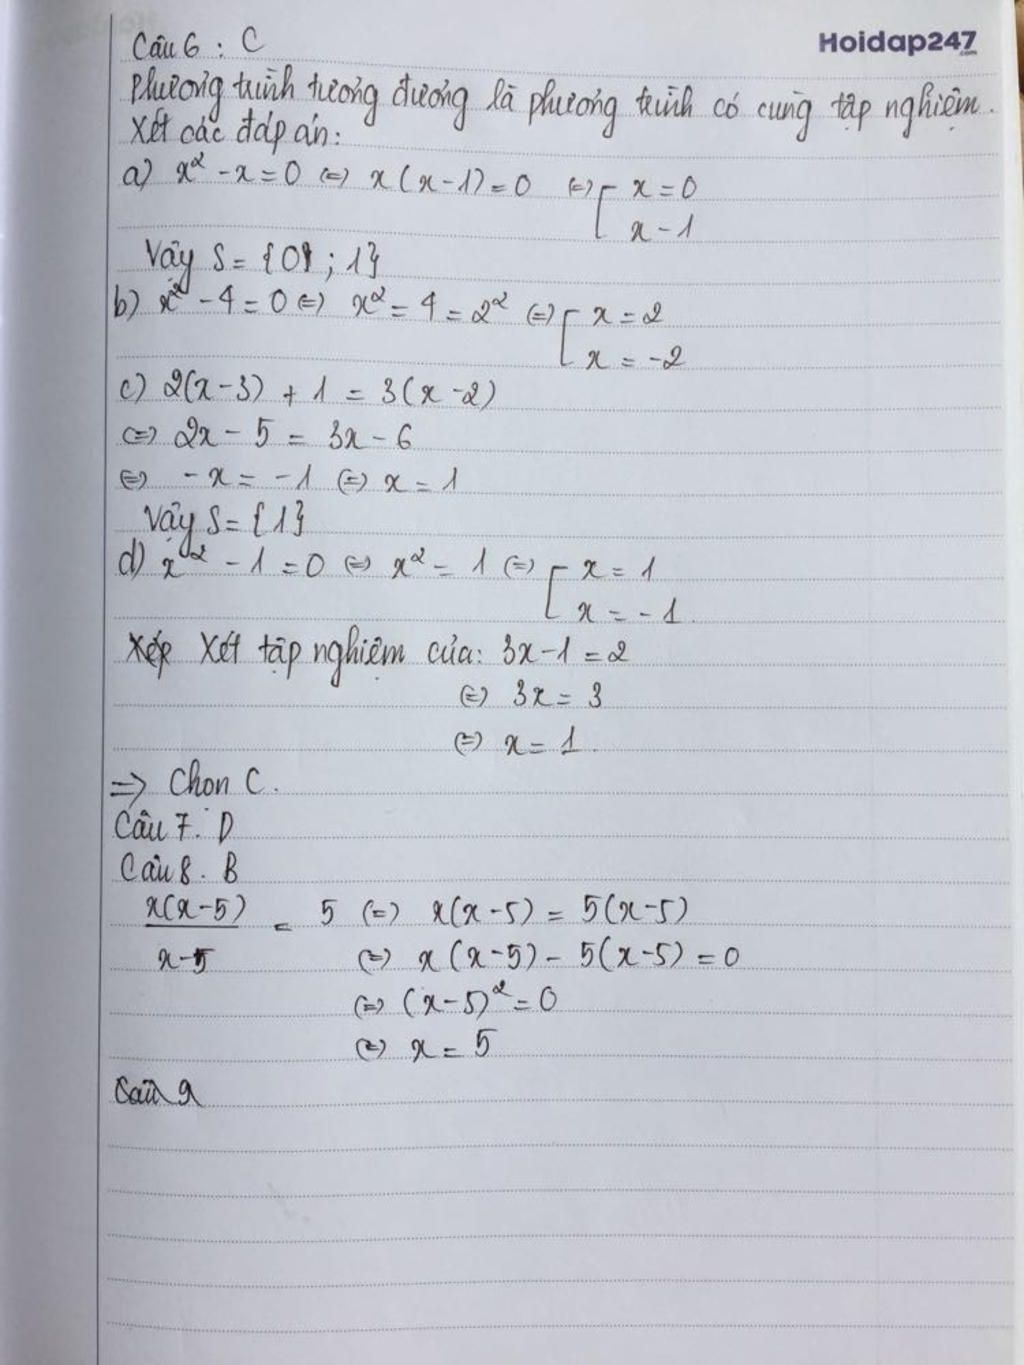 Hoidap247.com
Câu 6 : C
Phương trình tương đương là phương trình có cùng tập nghiệm.
Xét các đáp án:
a) x² - x = 0 (=) x(x-1) = 0 (=) [ x = 0
x - 1
Vậy S = {0 ; 1}
b) x² - 4 = 0 (=) x² = 4 = 2² (=) [ x = 2
x = -2
c) 2(x-3) + 1 = 3(x-2)
(=) 2x - 5 = 3x - 6
(=) -x = -1 (=) x = 1
Vậy S = {1}
d) x² - 1 = 0 (=) x² = 1 (=) [ x = 1
x = -1.
Xét tập nghiệm của: 3x-1 = 2
(=) 3x = 3
(=) x = 1.
=> Chọn C.
Câu 7. D
Câu 8. B
x(x-5)/x-5 = 5 (=) x(x-5) = 5(x-5)
(=) x(x-5) - 5(x-5) = 0
(=) (x-5)² = 0
(=) x = 5
Câu 9